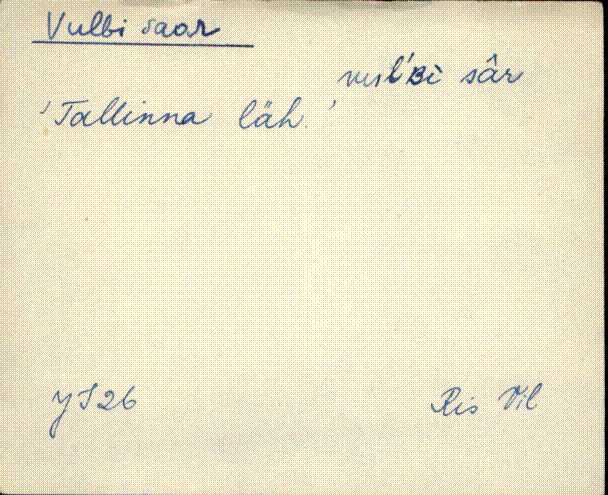 Vulbi saar
vul'ʙì sâr
'Tallinna läh.'
YS26
Ris Vil